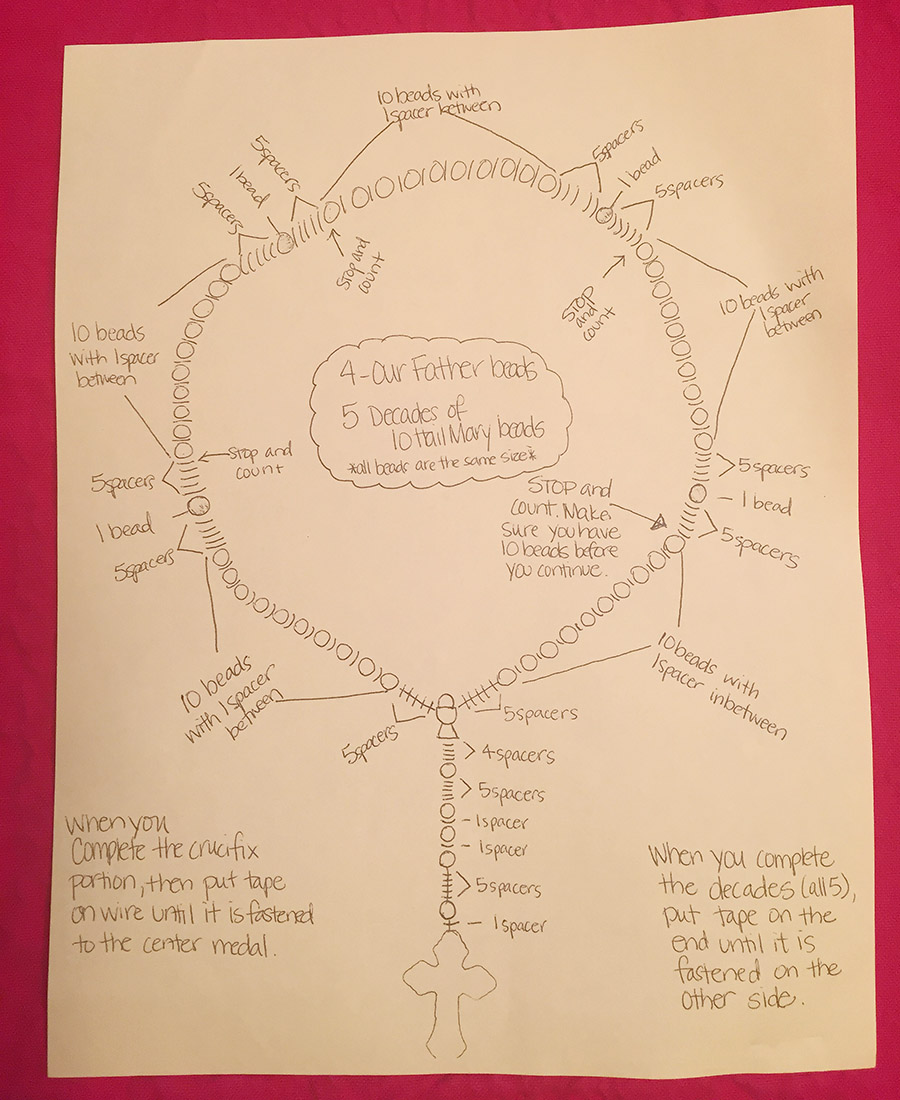 10 beads with
1spacer between
5spacers
1 bead
5spacers
5spacers
1 bead
5spacers
Stop and
count
STOP
and
count
10 beads
with 1spacer
between
10 beads with
1spacer
between
4-Our Father beads
5 Decades of
10 Hail Mary beads
*all beads are the same size*
Stop and
count
5spacers
1 bead
5spacers
STOP and
count. Make
sure you have
10 beads before
you continue.
5spacers
1 bead
5spacers
10 beads
with 1spacer
between
10 beads with
1spacer inbetween
5spacers
5spacers
4spacers
5spacers
1spacer
1spacer
5spacers
1spacer
When you
Complete the crucifix
portion, then put tape
on wire until it is fastened
to the center medal.
When you complete
the decades (all 5),
put tape on the
end until it is
fastened on the
other side.